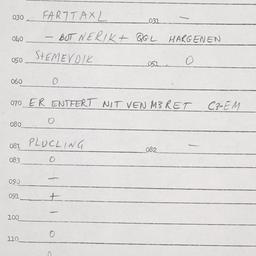 030 FARTTAXL 031 –
040 – BUT NERIK+ QGL HARGENEN
050 S+EMEVDIK 052 O
060 O
070 ER ENTFERT NIT VEN M3RET
080 O
081 PLUCLING 082 –
083 O
090 –
091 +
100 –
110 O